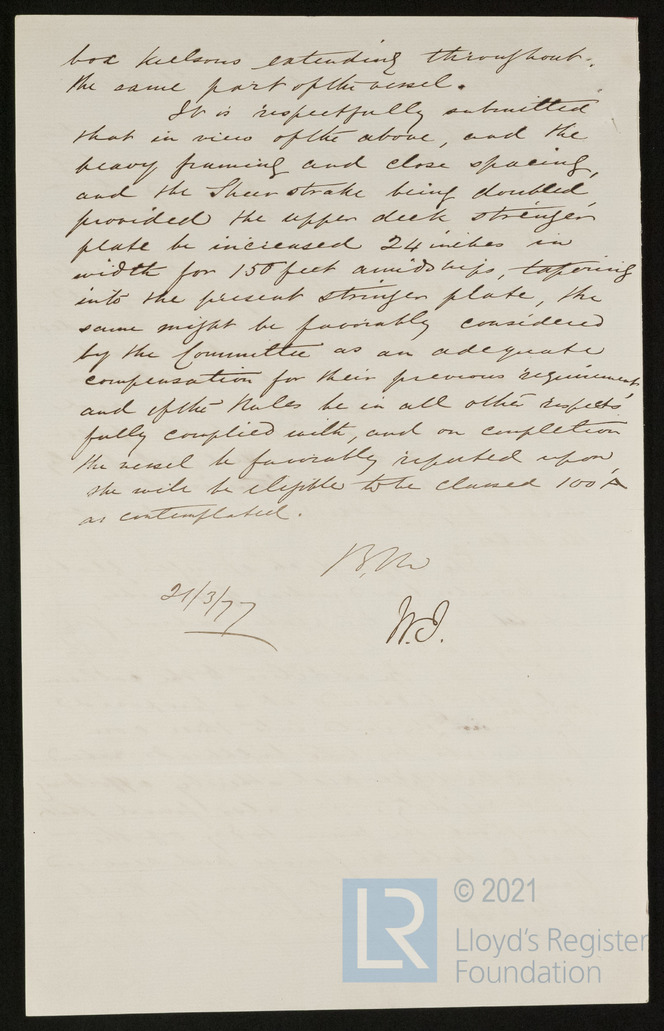 box keelsons extending throughout.
the same part of the vessel.
It is respectfully submitted
that in view of the above, and the
heavy framing and close spacing,
and the Sheerstrake being doubled,
provided the upper deck stringer
plate be increased 24 inches in
width for 150 feet amidships, tapering
into the present stringer plate, the
same might be favorably considered
by the Committee as an adequate
compensation for their previous requirements,
and if the Rules be in all other respects
fully complied with, and on completion
the vessel be favorably reported upon
she will be eligible to be classed 100A
as contemplated.
21/3/77
W.J.
LR
© 2021
Lloyd's Register
Foundation